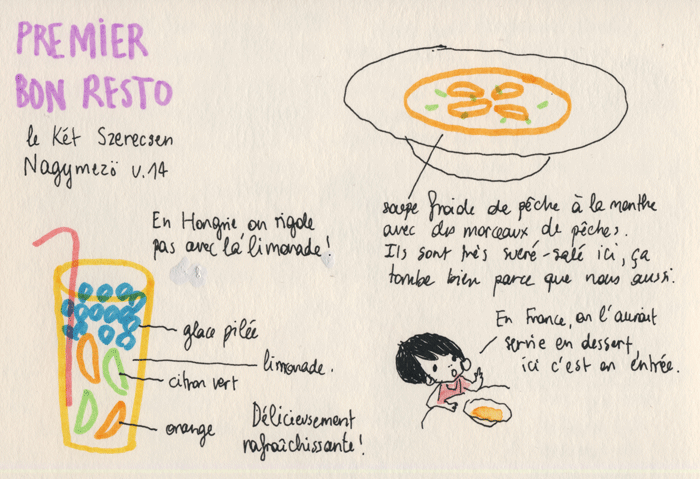 PREMIER
BON RESTO
le Két Szerecsen
Nagymezö u.14
En Hongrie on rigole
pas avec la limonade!
glace pilée
limonade.
citron vert
orange
Délicieusement
rafraîchissante!
soupe froide de pêche à la menthe
avec des morceaux de pêches.
Ils sont très sucré-salé ici, ça
tombe bien parce que nous aussi.
En France, on l'aurait
servie en dessert,
ici c'est en entrée.